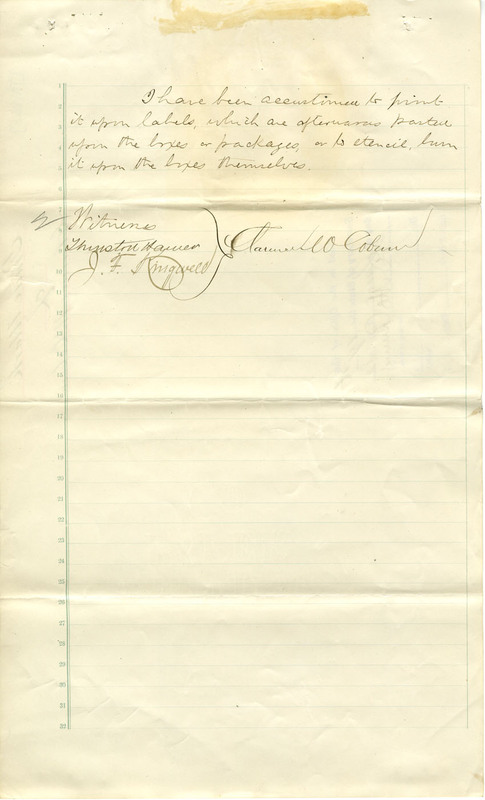 I have been accustomed to print
it upon labels, which are afterwards pasted
upon the boxes or packages, or to stencil, burn
it upon the boxes themselves.
Witness
Clarence W Coburn
J. F.
1
2
3
4
5
6
7
8
9
10
11
12
13
14
15
16
17
18
19
20
21
22
23
24
25
26
27
28
29
30
31
32